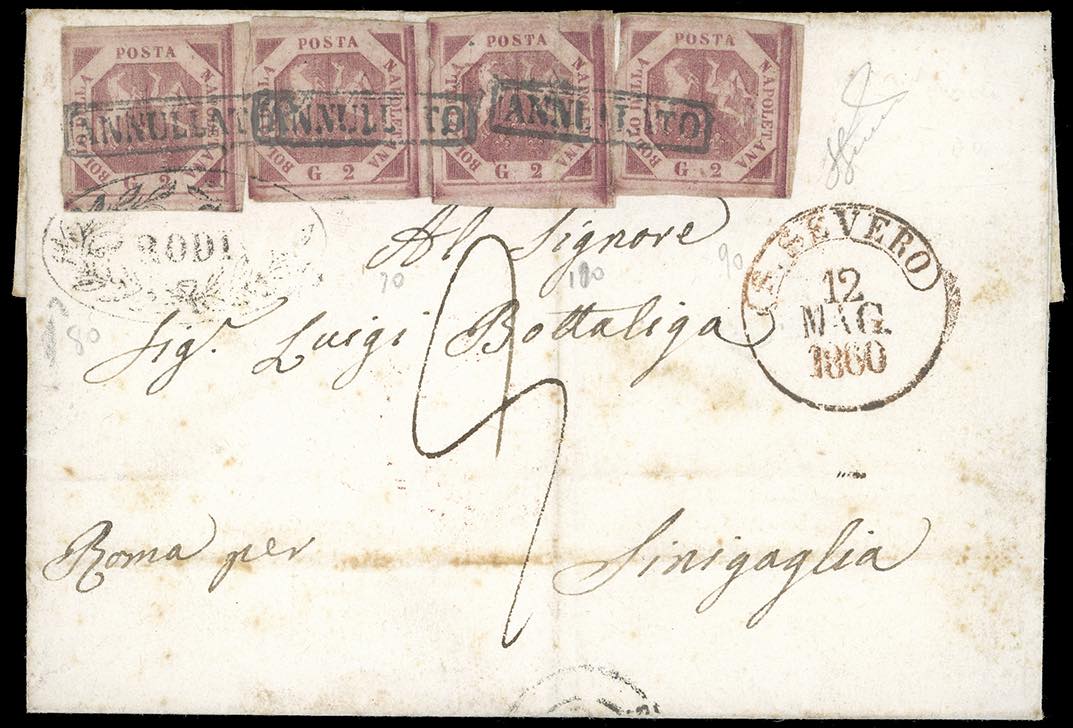 POSTA NAPOLETANA BOLLO DELLA G 2
POSTA NAPOLETANA BOLLO DELLA G 2
POSTA NAPOLETANA BOLLO DELLA G 2
POSTA NAPOLETANA BOLLO DELLA G 2
ANNULLATO
ANNULLATO
ANNULLATO
RODI
S. SEVERO
12
MAG.
1860
Al Signore
70 100 90
80
Sig. Luigi Bottaliga
Roma per Sinigaglia